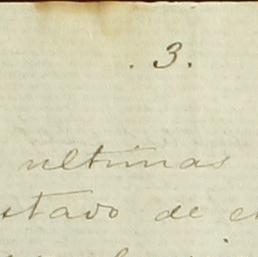 . 3.
ultimas
stado de e